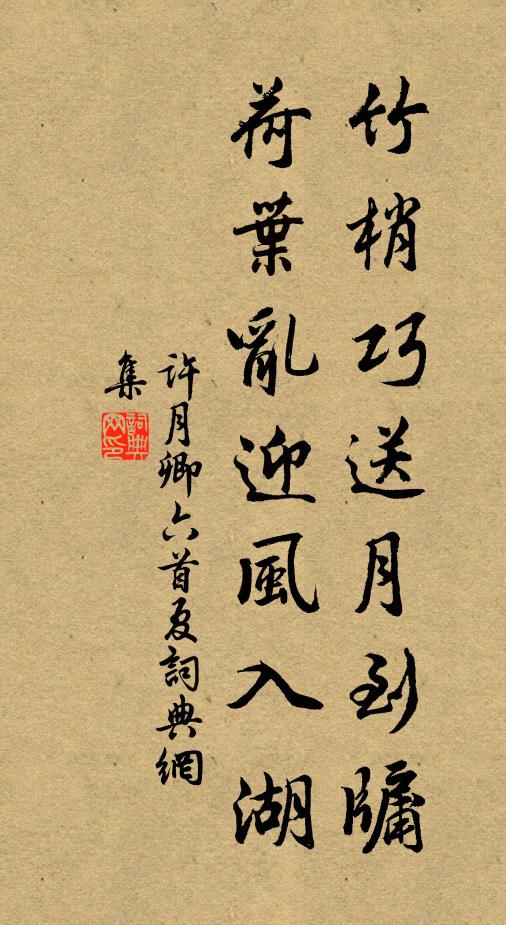 竹梢巧送月到牗
荷葉亂迎風入湖
許月卿六首夏詞典網
集
詞典網印